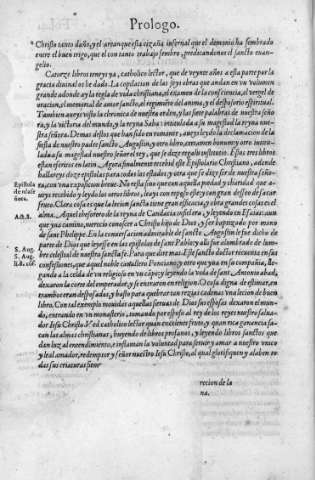 Prologo.
Christo tanto daño, y el arranque esta cizaña infernal que el demonio ha sembrado
entre el buen trigo, que el con tanto trabajo sembro, predicandonos el sancto euan-
gelio.
Catorze libros teneys ya, catholico lector, que de veynte años a esta parte por la
gracia diuina os he dado. La copilacion de las seys obras que andan en vn volumen
grande adonde ay la regla de vida christiana, el examen de la consciencia, el vergel de
oracion, el memorial de amor sancto, el regimiẽto del anima, y el desposorio espiritual.
Tambien aueys visto la chronica de nuestra orden, y las siete palabras de nuestra seño-
ra, y la victoria del mundo, y la reyna Saba: intitulada a su magestad la reyna nue-
stra señora. De mas destos que han sido en romance, aueys leydo la declaracion de la
de nuestro padre sanct Augustin, y otro libro,
a su magestad nuestro señor el rey, que se dize regalis institutio. Estos tres libros
estan escriptos en latin. Agora finalmente recebid este Epistolario Christiano, adonde
hallareys doze epistolas para todos los estados, y otra que se dize ser de nuestra seño-
Epistola
ra, con vna exposicion breue. No resta sino que con aquella piedad y charidad que a-
ueys recebido y leydo los otros libros, leays con reposo este y con gran desseo de sacar
fructo. Clara cosa es que la lecion sancta tiene gran efficacia, y obra grandes cosas en el
Act. 8.
alma. Aquel thesorero de la reyna de Candacia infiel era, y leyendo en Esaias: aun
que yua camino, merecio conoscer a Christo hijo de Dios, y ser baptizado por mano
de sant Philippe. En la conuersacion admirable de sancto Augustin le fue dicho de
S. Aug.
parte de Dios que leyesse en las epistolas de sant Pablo: y alli fue alumbrado de lum-
S. Aug.
bre celestial de nuestra sancta fe. Para que dire mas. Este sancto doctor recuenta en sus
confessiones, que aquel noble cauallero Ponciano, y otro que yua en su compañia, lle-
gando a la celda de vn religioso en vn cãpo, y leyendo la vida de sant Antonio abad,
dexaron la corte del emperador, y se entraron en religion. O cosa digna de estimar,
y basto para quebrar tan rezias cadenas vna lecion de buen
libro. Con tal exemplo mouidas aquellas sieruas de Dios sus esposas dexaron el mun-
do, entrando en vn monasterio, tomando por esposo al rey de los reyes nuestro salua-
dor Iesu Christo. Ved catholico lector quan excelente fruto, y quan rica ganancia sa-
can las almas christianas, huyendo de libros profanos, y leyendo libros sanctos que
dan luz al entendimiento, e inflaman la voluntad para seruir y amar a nuestro vnico
y leal amador, redemptor y señor nuestro Iesu Christo, al qual glorifiquen y alaben to-
das sus criaturas
recion de la
na.